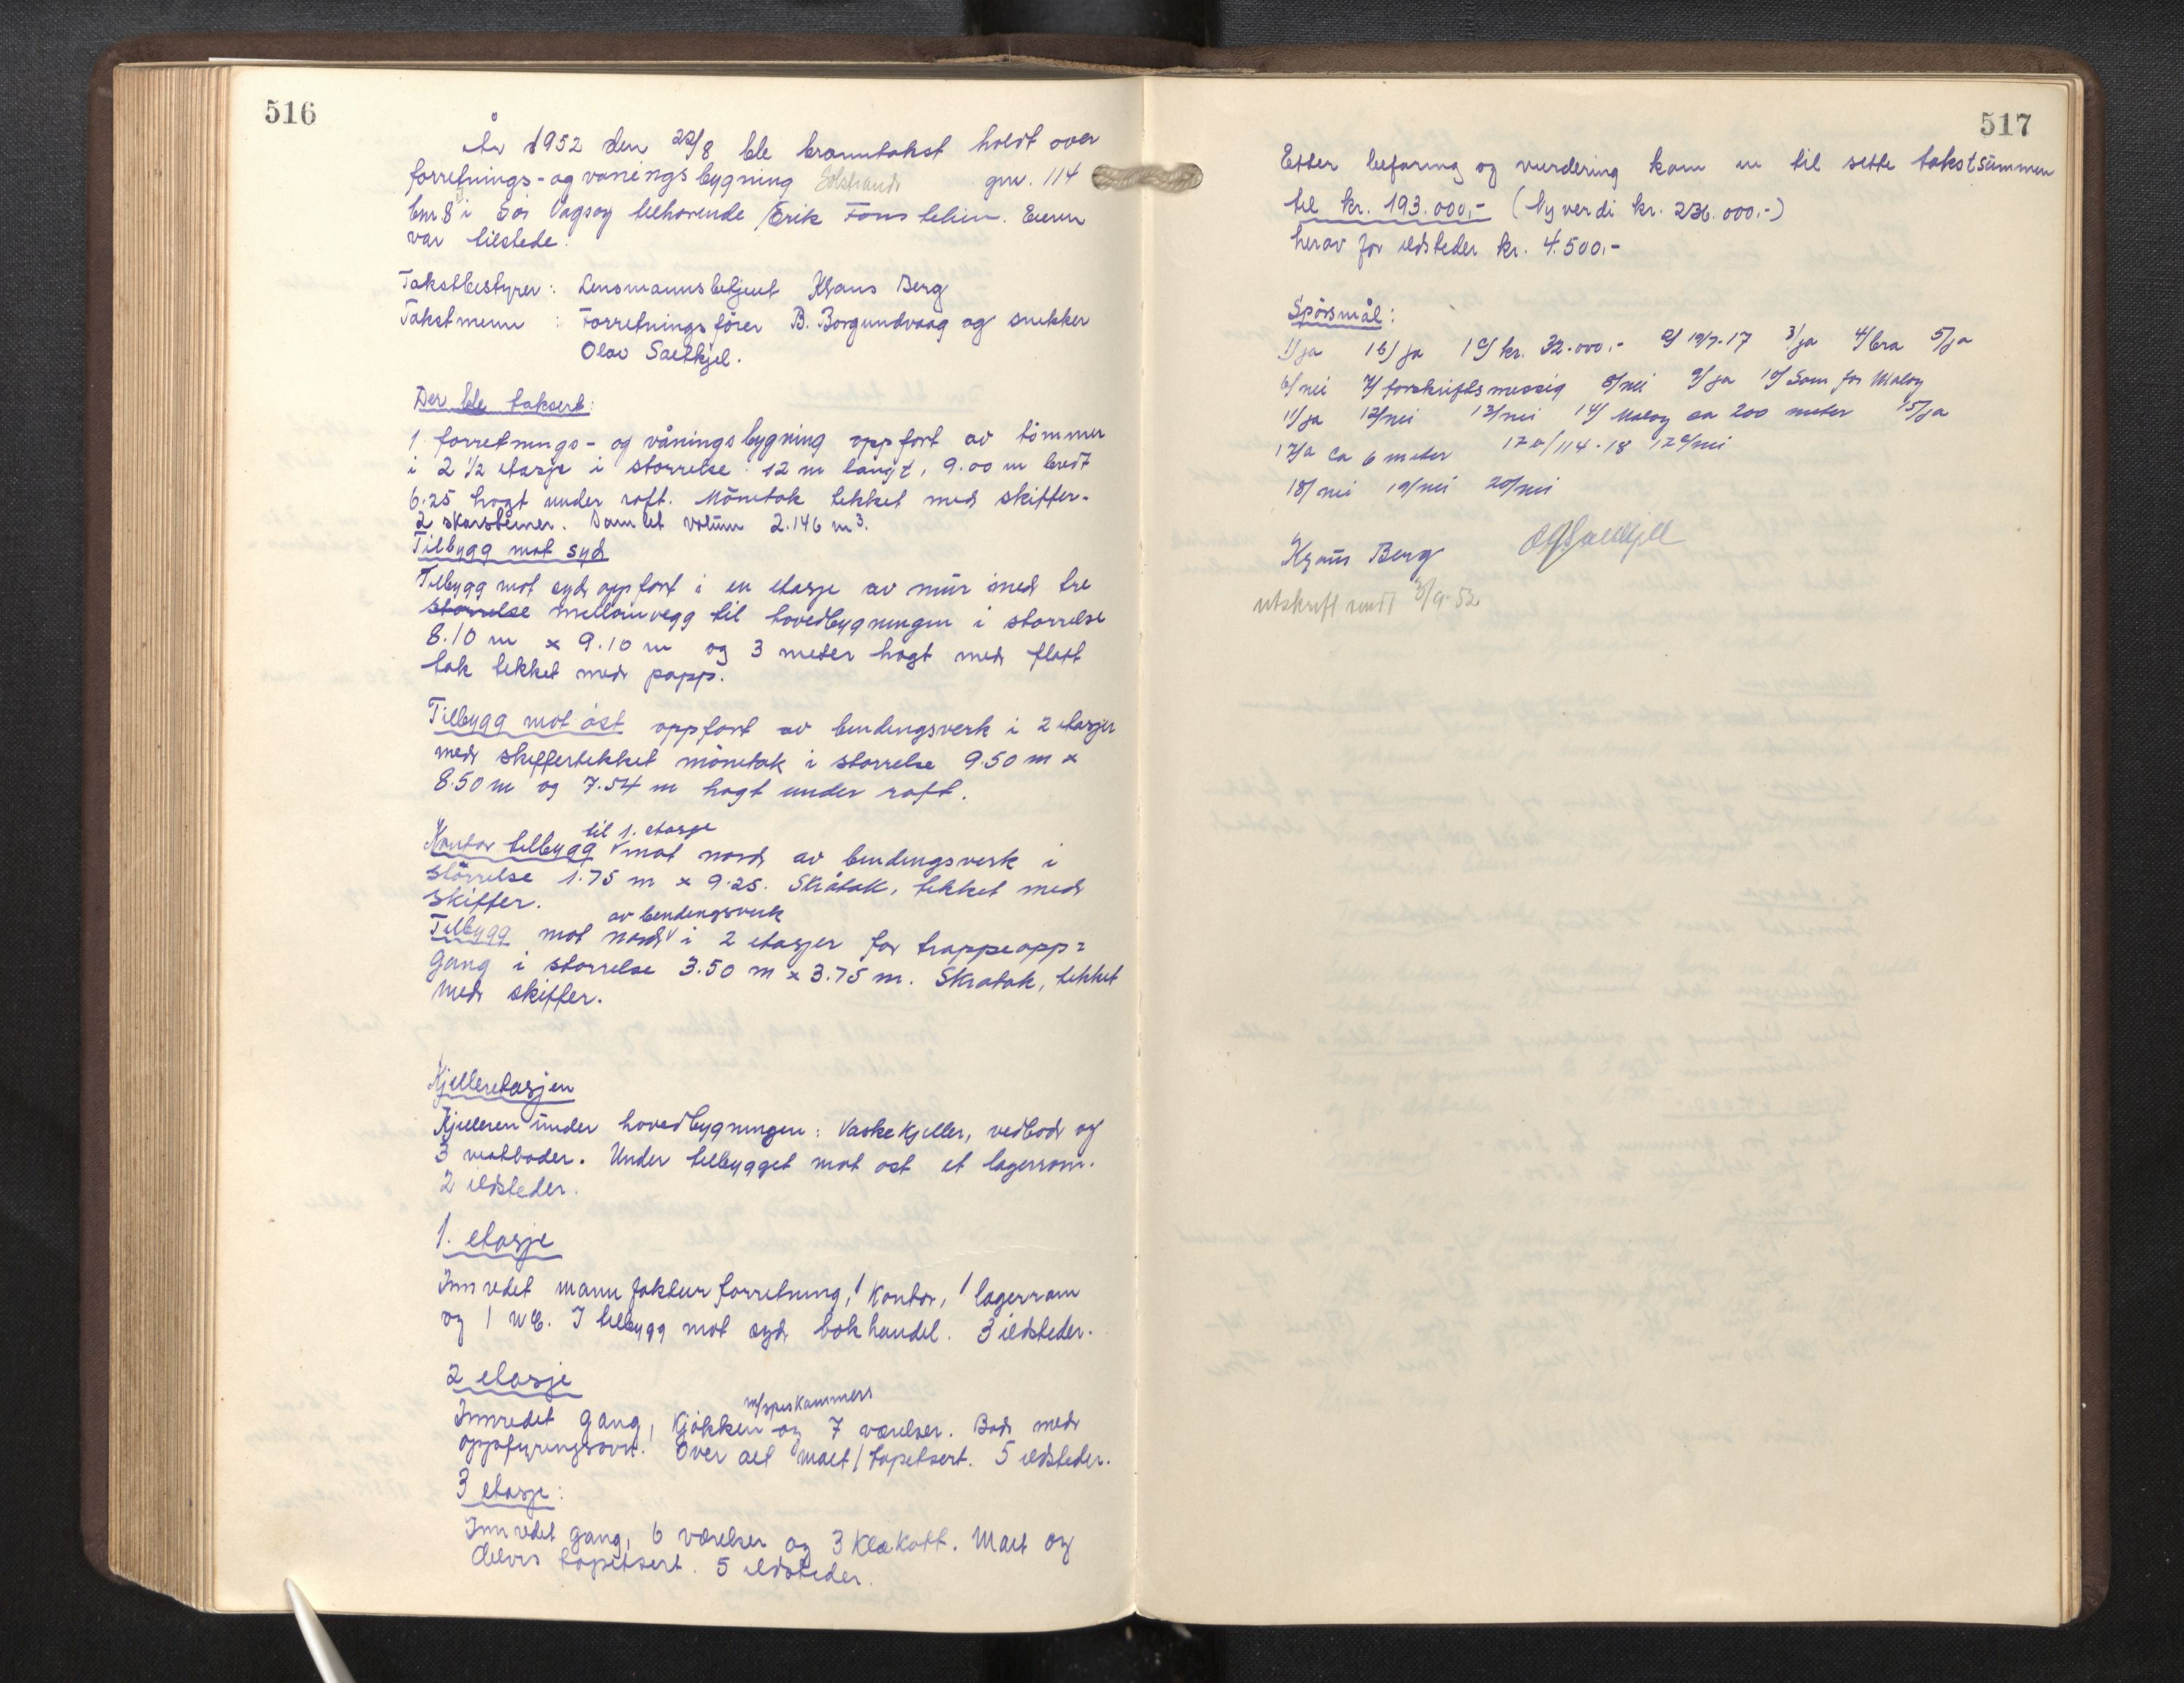 516
År 1952 den 22/8 ble branntakst holdt over
forretnings- og våningsbygning Solstrand gnr. 114
bnr 8 i Sör Vågsöy tilhörende Erik Eieren
var tilstede.
Takstbestyrer: Lensmannsbetjent Klaus Berg
Takstmenn : Forretningsförer B. Borgundvaag og snekker
Olav Saetkjel.
Der ble taksert:
1 forretnings- og våningsbygning oppfört av tömmer
i 2 1/2 etasje i störrelse 12 m langt, 9.00 m bredt
6.25 högt under raft. Mönetak tekket med skiffer.
2 skorsteiner. Samlet volum 2.146 m3.
Tilbygg mot syd
Tilbygg mot syd oppfört i en etasje av mur med tre
störrelse mellomvegg til hovedbygningen i störrelse
8.10 m x 9.10 m og 3 meter högt med flatt
tak tekket med papp.
Tilbygg mot öst oppfört av bindingsverk i 2 etasjer
med skiffertekket mönetak i störrelse 9.50 m x
8.50 m og 7.54 m högt under raft.
til 1. etasje
Kontor tilbygg mot nord av bindingsverk i
störrelse 1.75 m x 9.25. Skråtak, tekket med
skiffer.
av bindingsverk
Tilbygg mot nord i 2 etasjer for trappeopp=
gang i störrelse 3.50 m x 3.75 m. Skråtak, tekket
med skiffer.
Kjelleretasjen
Kjelleren under hovedbygningen: Vaskekjeller, vedbod og
3 matboder. Under tilbygget mot öst et lagerrom.
2 ildsteder.
1. etasje
Innredet manufakturforretning, 1 kontor, 1 lagerrom
og 1 WC. I tilbygg mot syd bokhandel. 3 ildsteder.
2 etasje
m/spiskammers
Innredet gang, kjökken og 7 værelser. Bad med
oppfyringsovn. Over alt malt/tapetsert. 5 ildsteder.
3 etasje:
Innredet gang, 6 værelser og 3 klekott. Malt og
delvis tapetsert. 5 ildsteder.
517
Etter befaring og vurdering kom en til sette takstsummen
til kr. 193.000,- (Ny verdi kr. 236.000.-)
herav for ildsteder kr. 4.500,-
Spörsmål:
1/ja 1b/ ja 1c/ kr. 32.000.- 2/ 19/7-17 3/ja 4/bra 5/ja
6/nei 7/ forskriftsmessig 8/nei 9/ja 10/ Som for Måløy
11/ja 12/nei 13/nei 14/ Måløy ca 200 meter 15/ja
17/a ca 6 meter 17b/114-18 17c/nei
18/ nei 19/nei 20/nei
Klaus Berg
utskrift sendt 3/9-52